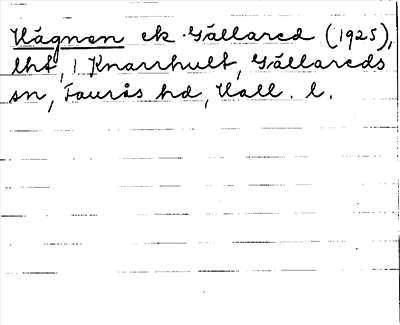 Hågnen ek Gällared (1925),
lht, 1 Knarrhult, Gällareds
sn, Faurås hd, Hall. l.